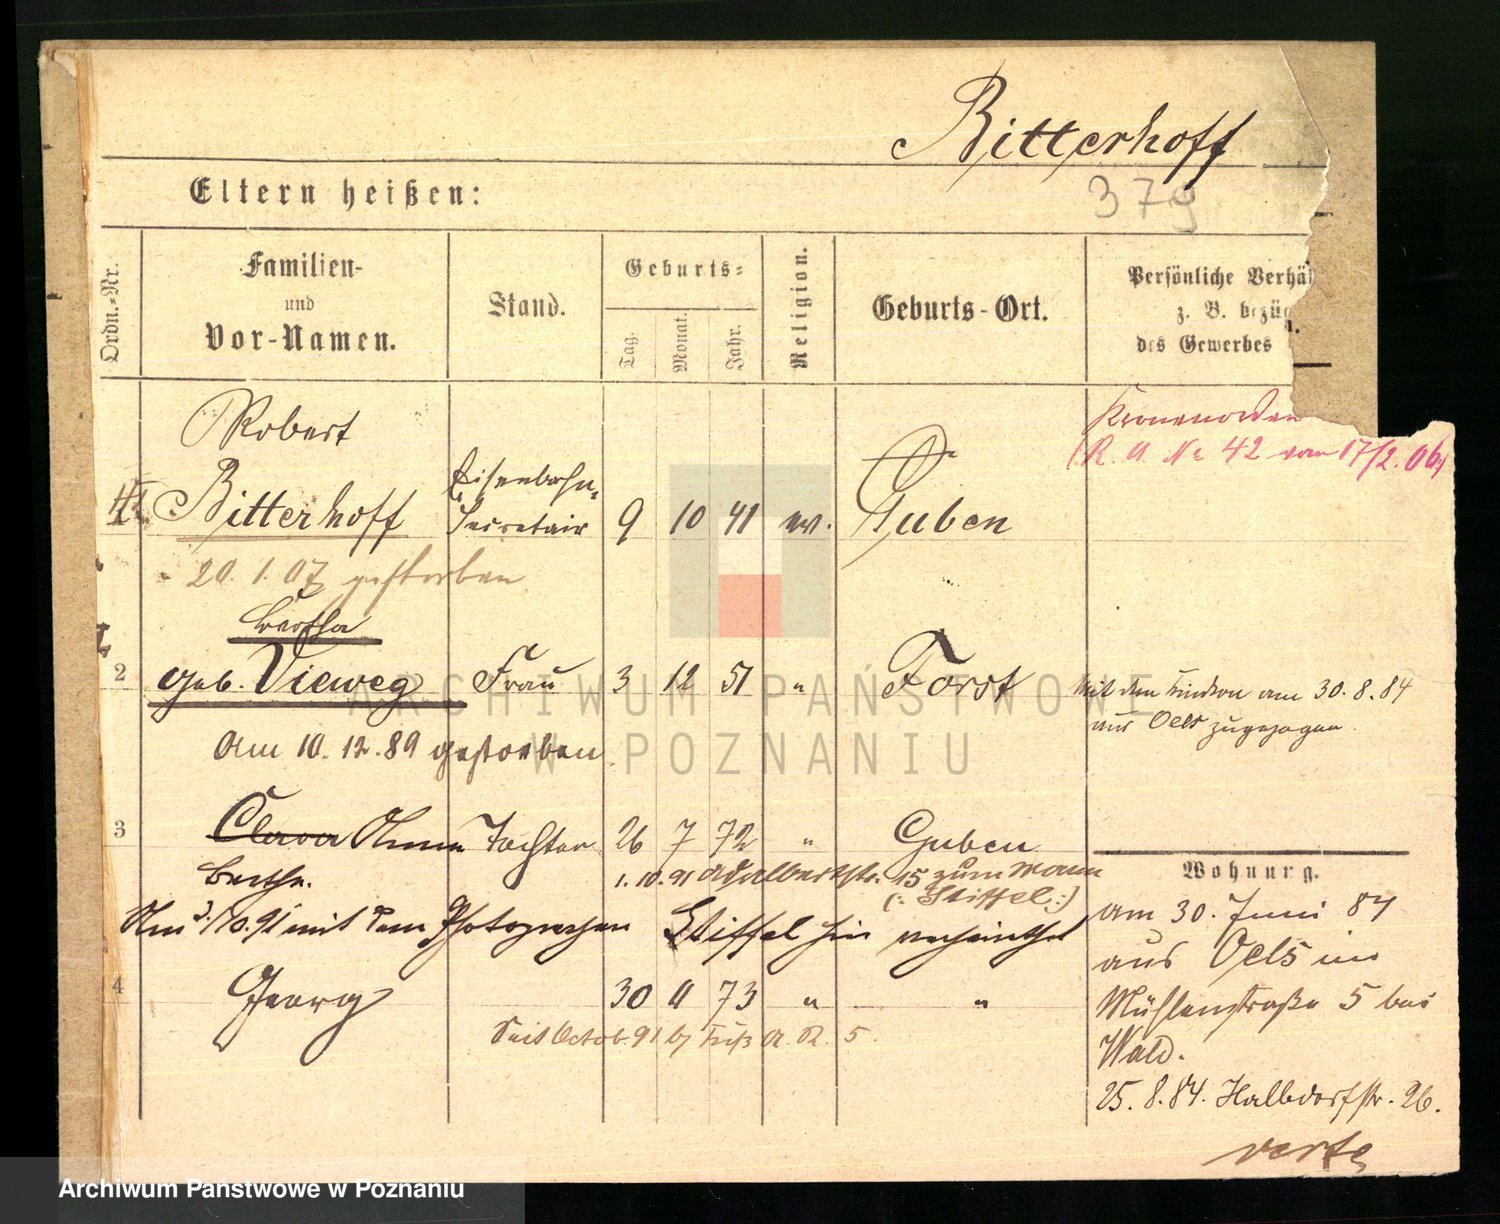 Bitterhoff
379
Eltern heißen:
Ordn.-Nr.
Familien-
und
Vor-Namen.
Stand.
Geburts-
Tag.
Monat.
Jahr.
Religion.
Geburts-Ort.
Persönliche Verhä
z. B. bezüg
des Gewerbes
Kronenorden
(R. A. No 42 vom 17/2. 06.)
Robert
Bitterhoff Eisenbahn-Secretair 9 10 41 ev. Guben
20. 1. 07 gestorben
Bertha
2 geb. Vieweg Frau 3 12 51 " Forst
Mit den Kindern am 30. 8. 84
aus Oels zugezogen.
Am 10. 12. 89 gestorben
3 Clara Anna Tochter 26 7 72 " Guben
Berthe.
1. 10. 91 Adalbertstr. 15 zum Mann
(: Stiffel :)
Am 3./10. 91 mit dem Photographen Stiffel hier verheirathet
4 Georg 30 9 73 " "
Seit Octob. 91 b/ Fuß A. R. 5.
Wohnung.
am 30. Juni 84
aus Oels in
Mühlenstraße 5 bei
Wald.
25. 8. 84. Halbdorfstr. 26.
verte
ARCHIWUM PAŃSTWOWE
W POZNANIU
Archiwum Państwowe w Poznaniu